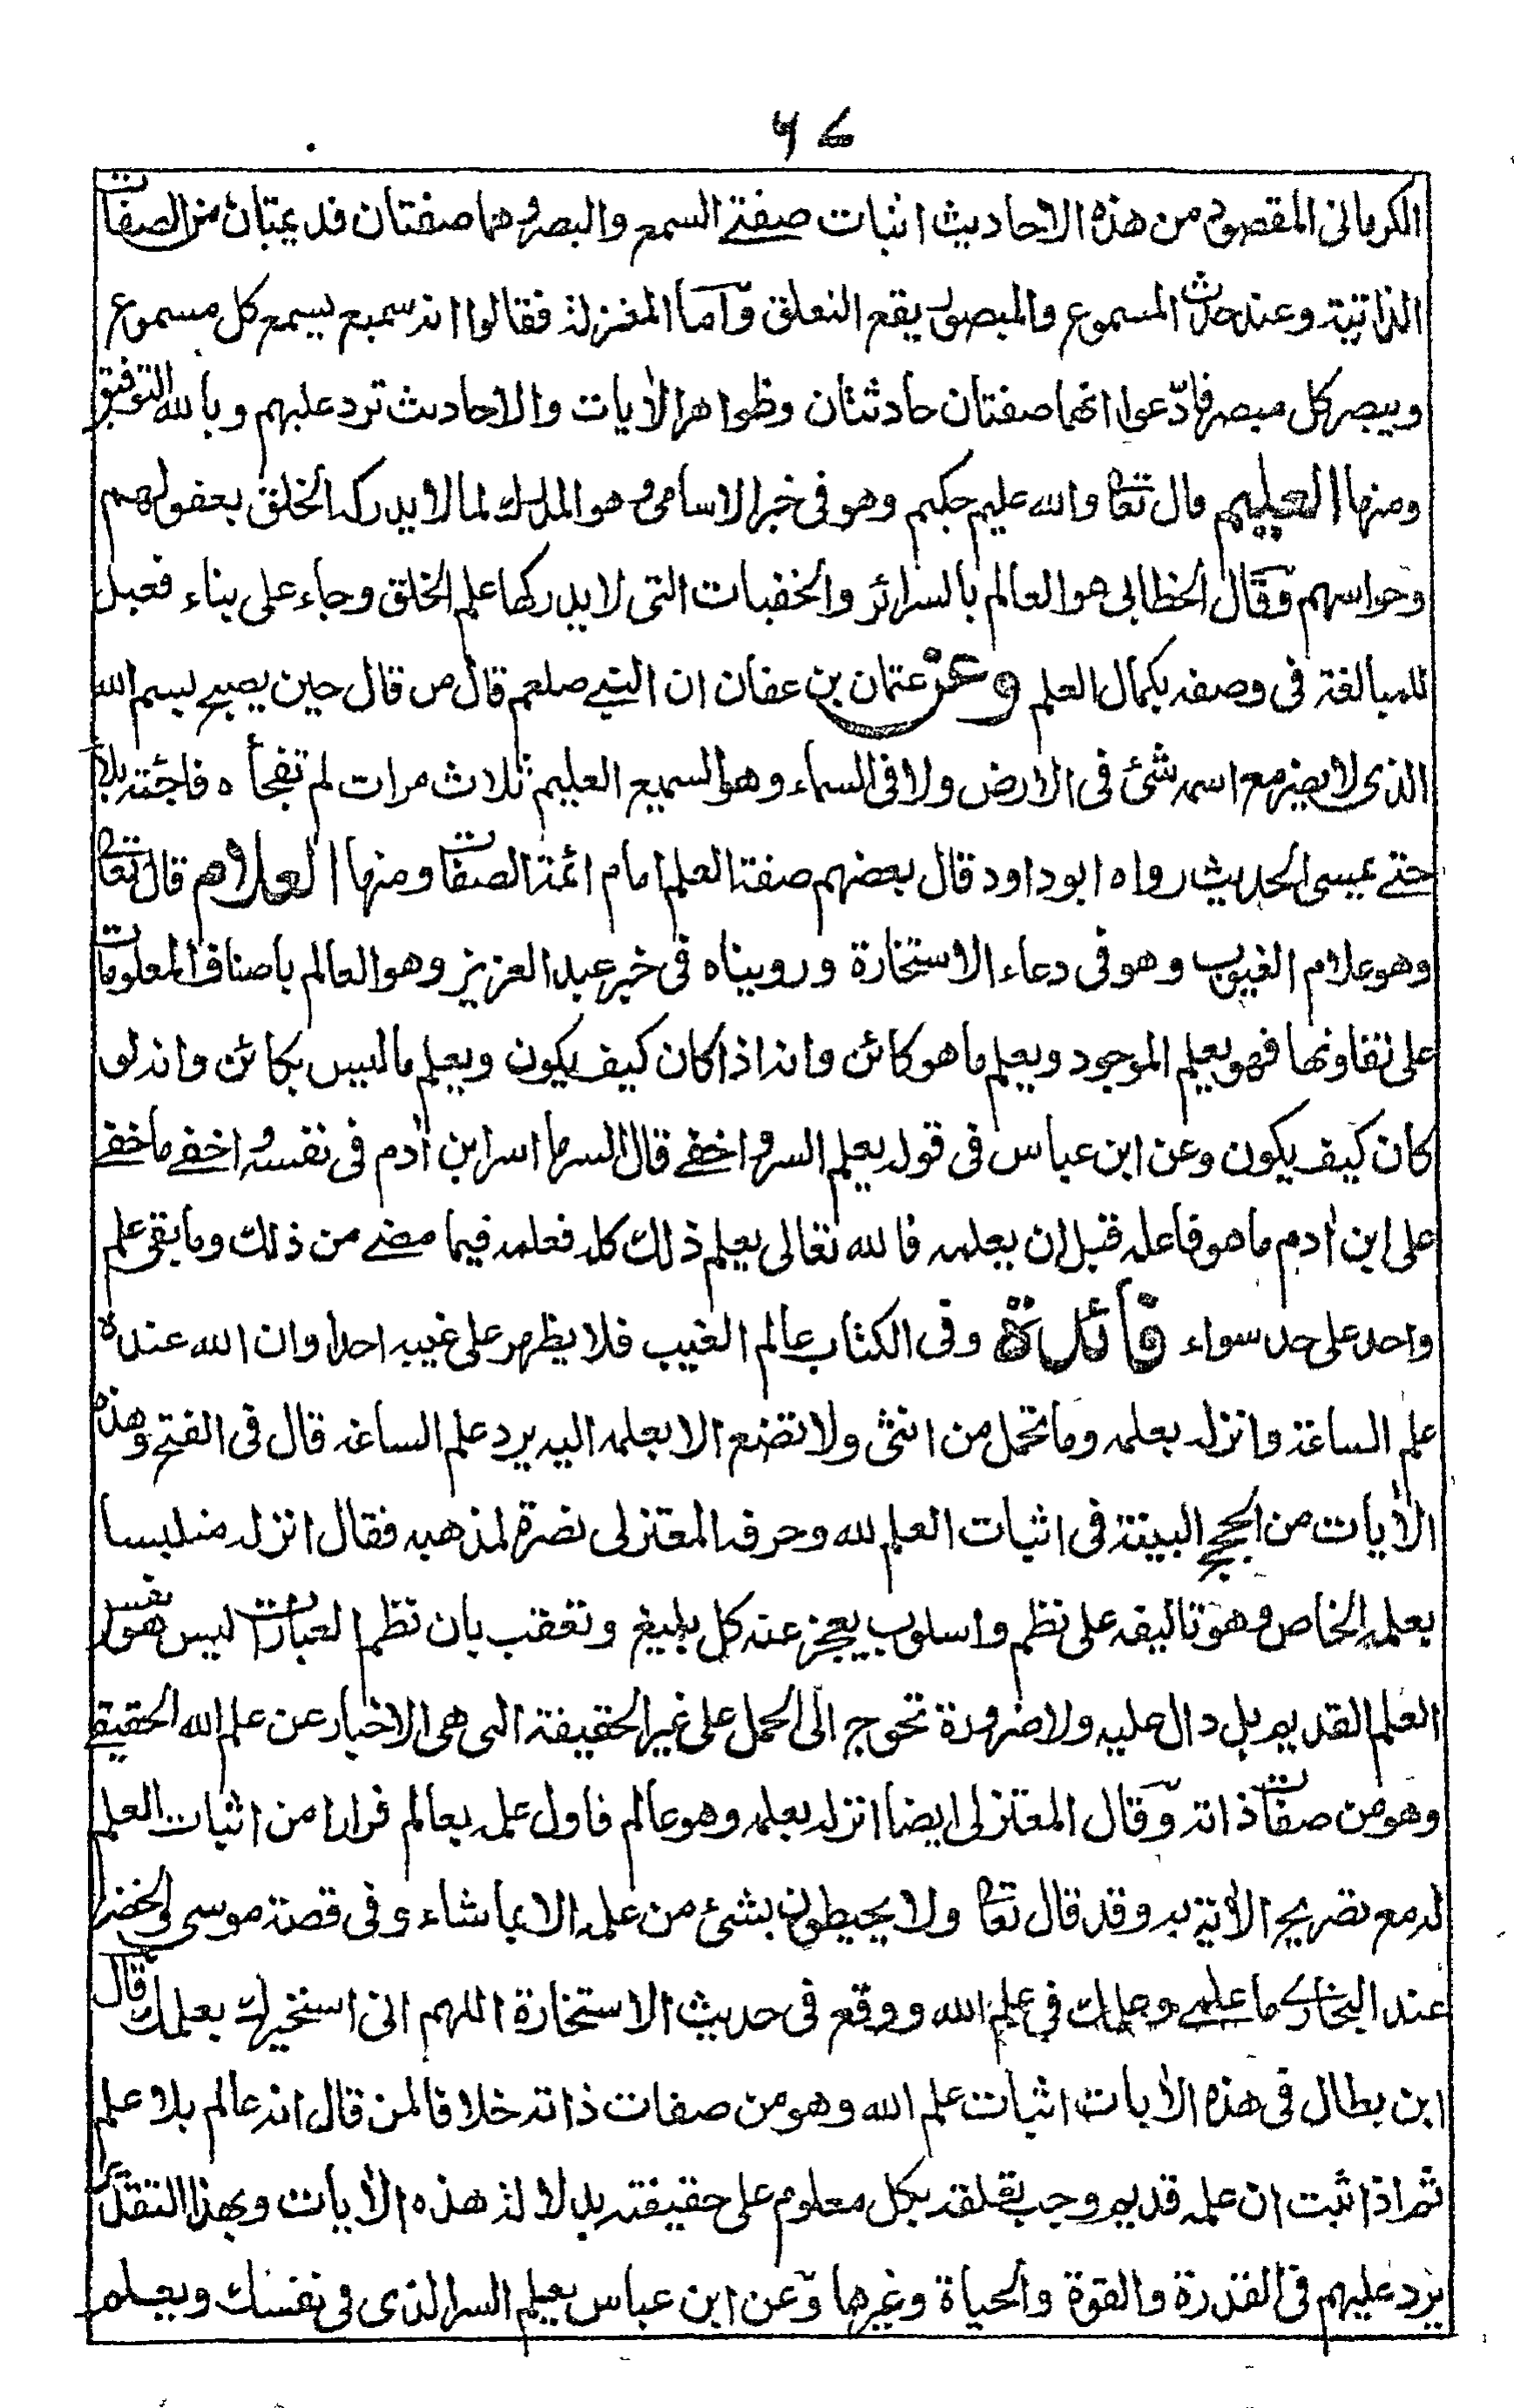 ٦٧
الكرمانى المقصود من هذه الاحاديث اثبات صفتے السمع والبصر وهما صفتان قديمتان من الصفات
الذاتية وعند حدوث المسموع والمبصر يقع التعلق وآما المعتزلة فقالوا انه سميع يسمع كل مسموع
ويبصر كل مبصر فادّعوا انهما صفتان حادثتان وظواهر الأيات والاحاديث ترد عليهم وبالله التوفيق
ومنها العليم قال تعا والله عليم حكيم وهو فى خبر الاسامى وهو المدرك لما لا يدركه الخلق بعقولهم
وحواسهم وقال الخطابى هو العالم بالسرائر والخفيات التى لا يدركها علم الخلق وجاء على بناء فعيل
للمبالغة فى وصفه بكمال العلم وعن عثمان بن عفان ان النبے صلعم قال من قال حين يصبح بسم الله
الذى لا يضر مع اسمه شئ فى الارض ولا فى السماء وهو السميع العليم ثلاث مرات لم تفجأه فاجئة بلاء
حتے يمسى الحديث رواه ابو داود قال بعضهم صفة العلم امام ائمة الصفات ومنها العلام قال تعا
وهو علام الغيوب وهو فى دعاء الاستخارة ورويناه فى خبر عبد العزيز وهو العالم باصناف المعلومات
على تفاوتها فهو يعلم الموجود ويعلم ما هو كائن وانه اذا كان كيف يكون ويعلم ما ليس بكائن وانه لو
كان كيف يكون وعن ابن عباس فى قوله يعلم السر واخفے قال السر ما اسر ابن أدم فى نفسه واخفے ما خفے
على ابن أدم ما هو فاعله قبل ان يعلمه فالله تعالى يعلم ذلك كله فعلمه فيما مضے من ذلك وما بقى علم
واحد على حد سواء فائدة وفى الكتاب عالم الغيب فلا يظهر على غيبه احدا وان الله عنده
علم الساعة وانزله بعلمه وما تحمل من انثى ولا تضع الا بعلمه اليه يرد علم الساعة قال فى الفتح وهذه
الأيات من الحجج البينة فى اثبات العلم لله وحرفه المعتزلى نصرة لمذهبه فقال انزله متلبسا
بعلمه الخاص وهو تاليفه على نظم واسلوب يعجز عنه كل بليغ وتعقب بان نظم العبارات ليس هو نفس
العلم القديم بل دال عليه ولا ضرورة تحوج الى الحمل على غير الحقيقة التى هى الاخبار عن علم الله الحقيقے
وهو من صفات ذاته وقال المعتزلى ايضا انزله بعلمه وهو عالم فاول علمه بعالم فرارا من اثبات العلم
له مع تصريح الأية به وقد قال تعا ولا يحيطون بشئ من علمه الا بما شاء وفى قصة موسى والخضر
عند البخارے ما علمے وعلمك فى علم الله ووقع فى حديث الاستخارة اللهم انى استخيرك بعلمك قال
ابن بطال فى هذه الأيات اثبات علم الله وهو من صفات ذاته خلافا لمن قال انه عالم بلا علم
ثم اذا ثبت ان علمه قديم وجب تعلقه بكل معلوم على حقيقته بدلالة هذه الأيات وبهذا التقدير
يرد عليهم فى القدرة والقوة والحياة وغيرها وعن ابن عباس يعلم السر الذى فى نفسك ويعلم